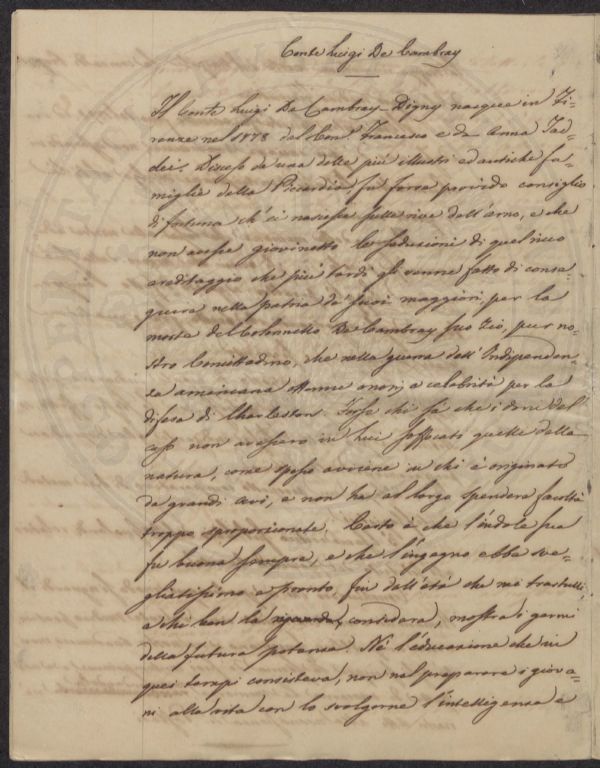 Conte Luigi De Cambray
Il Conte Luigi De Cambray-Digny nacque in Fi-
renze nel 1778 dal Con.e Francesco e da Anna Tad-
dei. Disceso da una delle più illustri ed antiche fa-
miglie della Piccardia, fu forse provvido consiglio
di fortuna ch'ei nascesse sulle rive dell'arno, e che
non avesse giovinetto le seduzioni di quel ricco
ereditaggio che più tardi gli venne fatto di conse-
guire nella patria de' suoi maggiori, per la
morte del Colonnello De Cambray suo Zio, pur no-
stro Concittadino, che nella guerra dell'Indipenden-
za americana ottenne onori e celebrità per la
difesa di Charleston. Forse chi sà che i doni del
caso non avessero in lui soffocati quelli della
natura, come spesso avviene in chi è originato
da grandi avi, e non ha al largo spendere facoltà
troppo sproporzionate. Certo è che l'indole sua
fu buona sempre, e che l'ingegno ebbe sve-
gliatissimo e pronto fin dall'età che ne' trastulli
a chi ben la riguarda, considera, mostra i germi
della futura potenza. Nè l'educazione che in
quei tempi consisteva, non nel preparare i giova-
ni alla vita con lo svolgerne l'intelligenza e